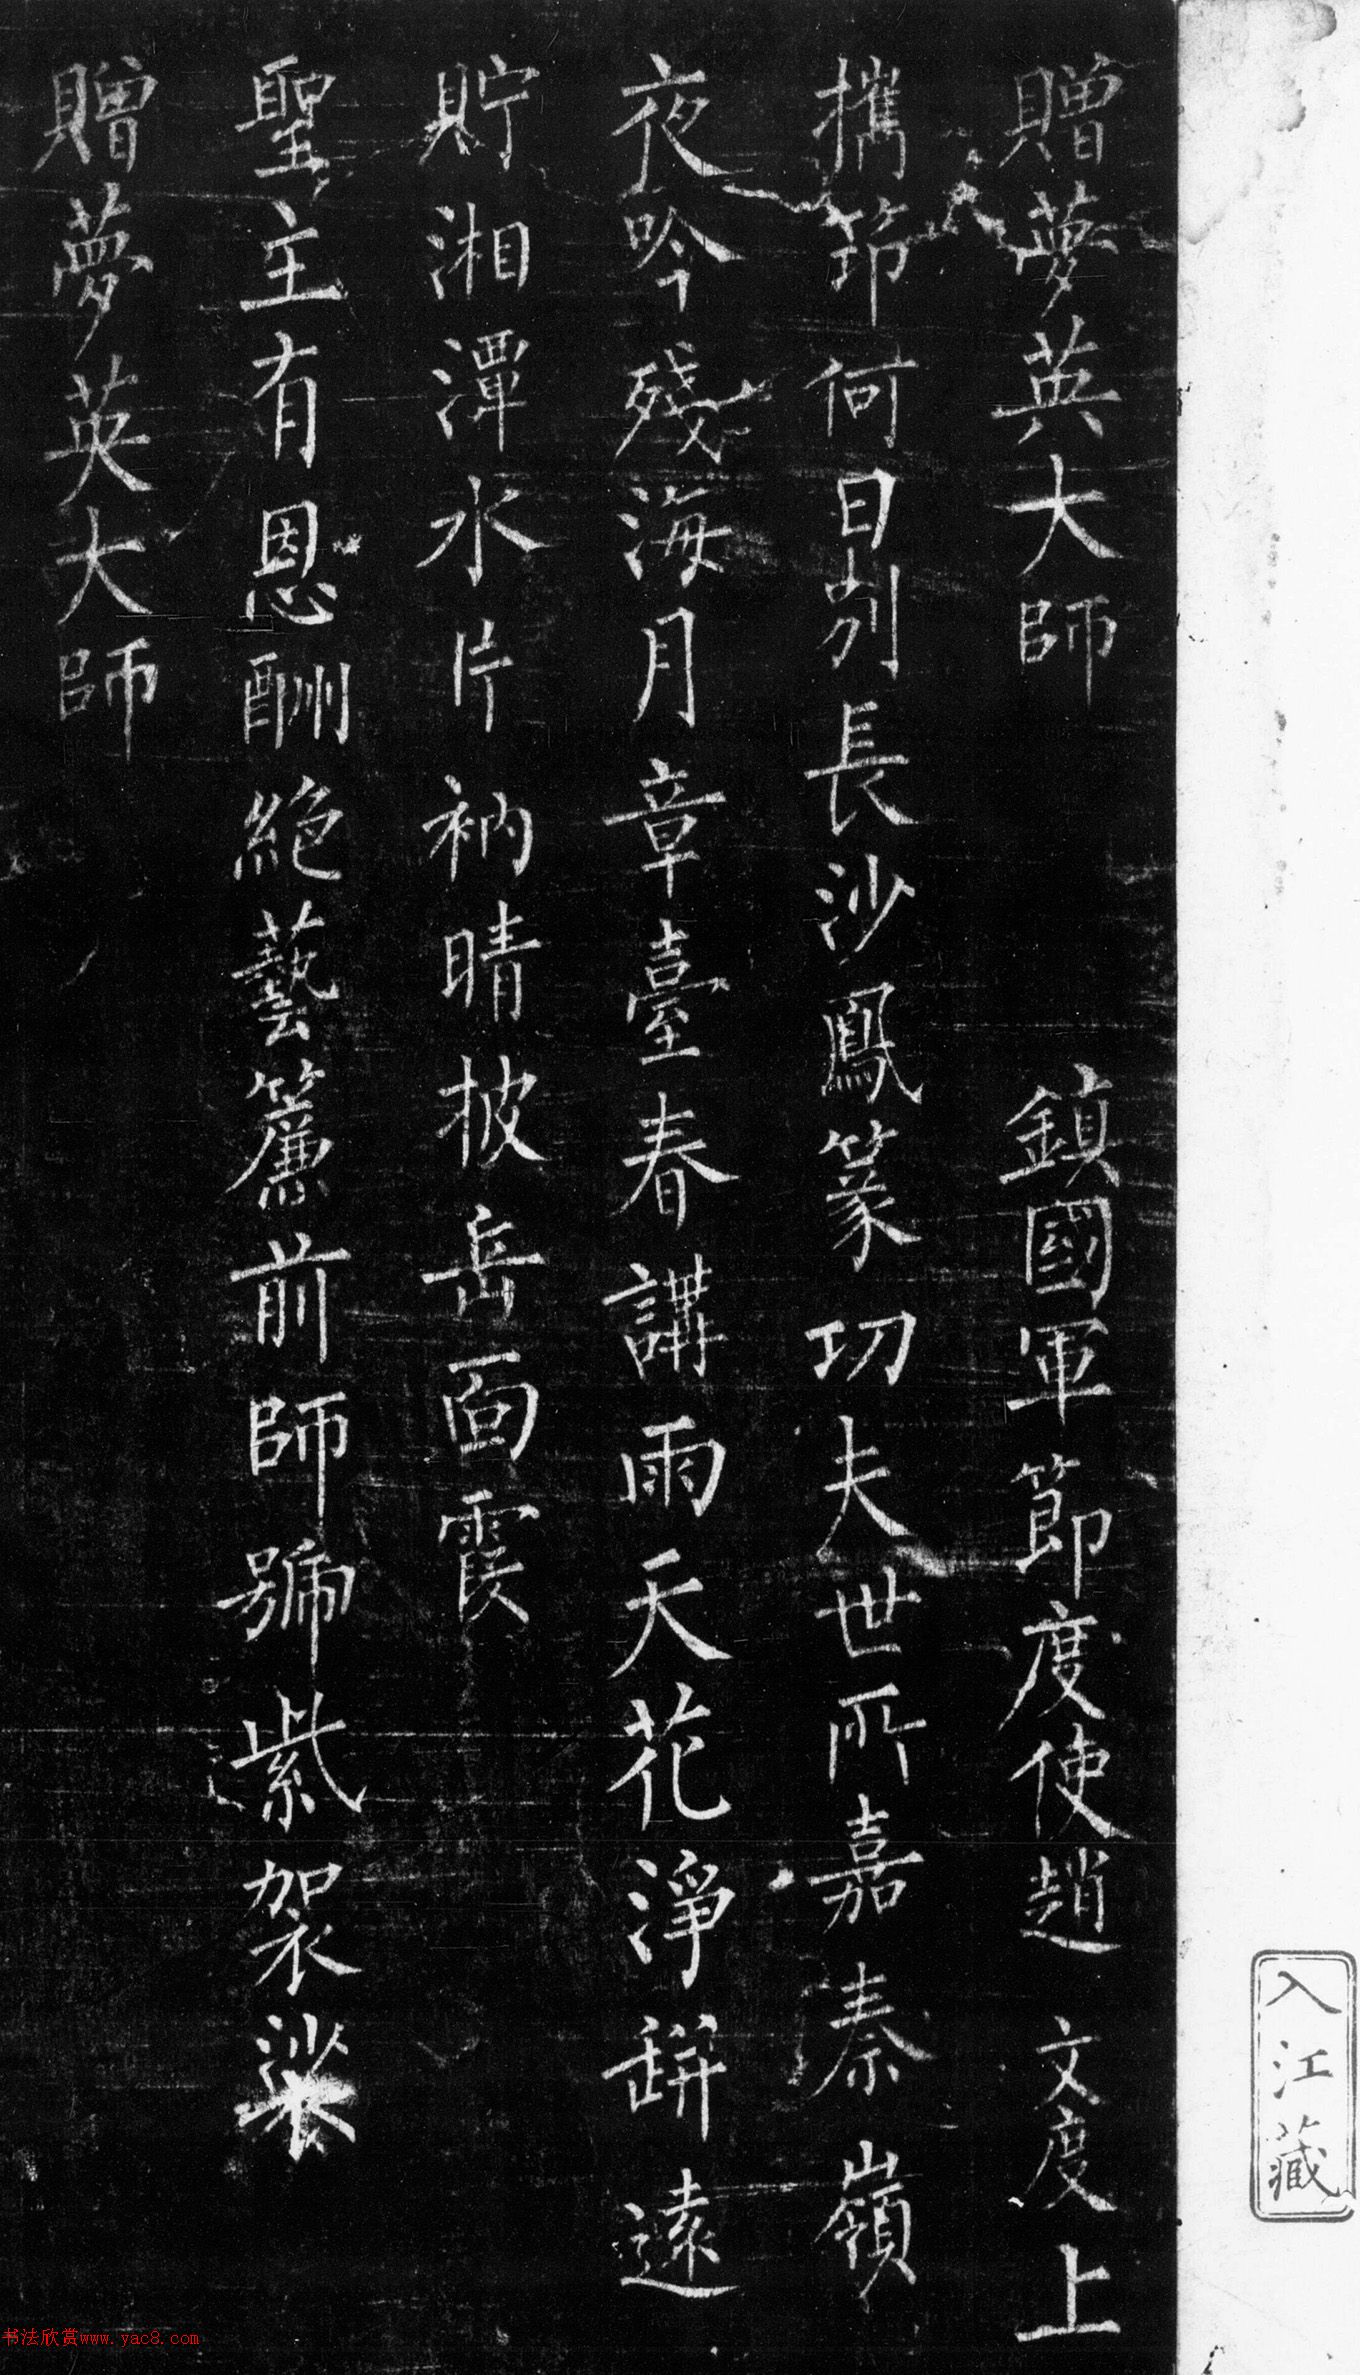 贈夢英大師 鎮國軍節度使趙 文度上
攜笻何日別長沙鳳篆功夫世所嘉秦嶺
夜吟殘海月章臺春講雨天花淨缾遠
貯湘潭水片衲晴披岳面霞
聖主有恩酬絕藝簾前師號紫袈裟
贈夢英大師
入江藏
书法欣赏www.yac8.com